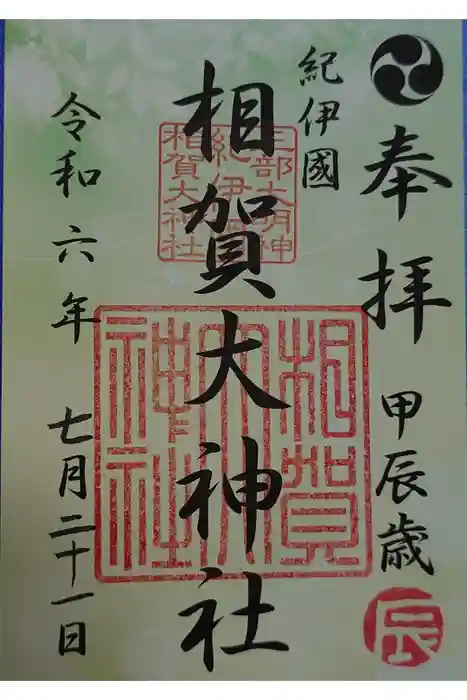 奉拝
甲辰歳
辰
紀伊國
相賀大神社
三部大明神
紀伊國
相賀大神社
相賀大神社
令和六年
七月二十一日